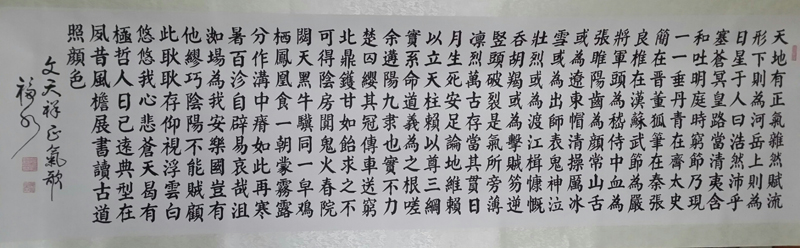 天地有正氣雜然賦流
形下則為河岳上則為
日星于人曰浩然沛乎
塞蒼冥皇路當清夷含
和吐明庭時窮節乃現
一一垂丹青在齊太史
簡在晉董狐筆在秦張
良椎在漢蘇武節為嚴
將軍頭為嵇侍中血為
張睢陽齒為顏常山舌
或為遼東帽清操厲冰
雪或為出師表鬼神泣
壯烈或為渡江楫慷慨
吞胡羯或為擊賊笏逆
豎頭破裂是氣所旁薄
凜烈萬古存當其貫日
月生死安足論地維賴
以立天柱賴以尊三綱
實系命道義為之根嗟
余遘陽九隶也實不力
楚囚纓其冠傳車送窮
北鼎鑊甘如飴求之不
可得陰房闃鬼火春院
閟天黑牛驥同一皁鳮
栖鳳凰食一朝蒙霧露
分作溝中瘠如此再寒
暑百沴自辟易哀哉沮
洳場為我安樂國豈有
他繆巧陰陽不能賊顧
此耿耿存仰視浮雲白
悠悠我心悲蒼天曷有
極哲人日已遠典型在
夙昔風檐展書讀古道
照顏色
文天祥正氣歌